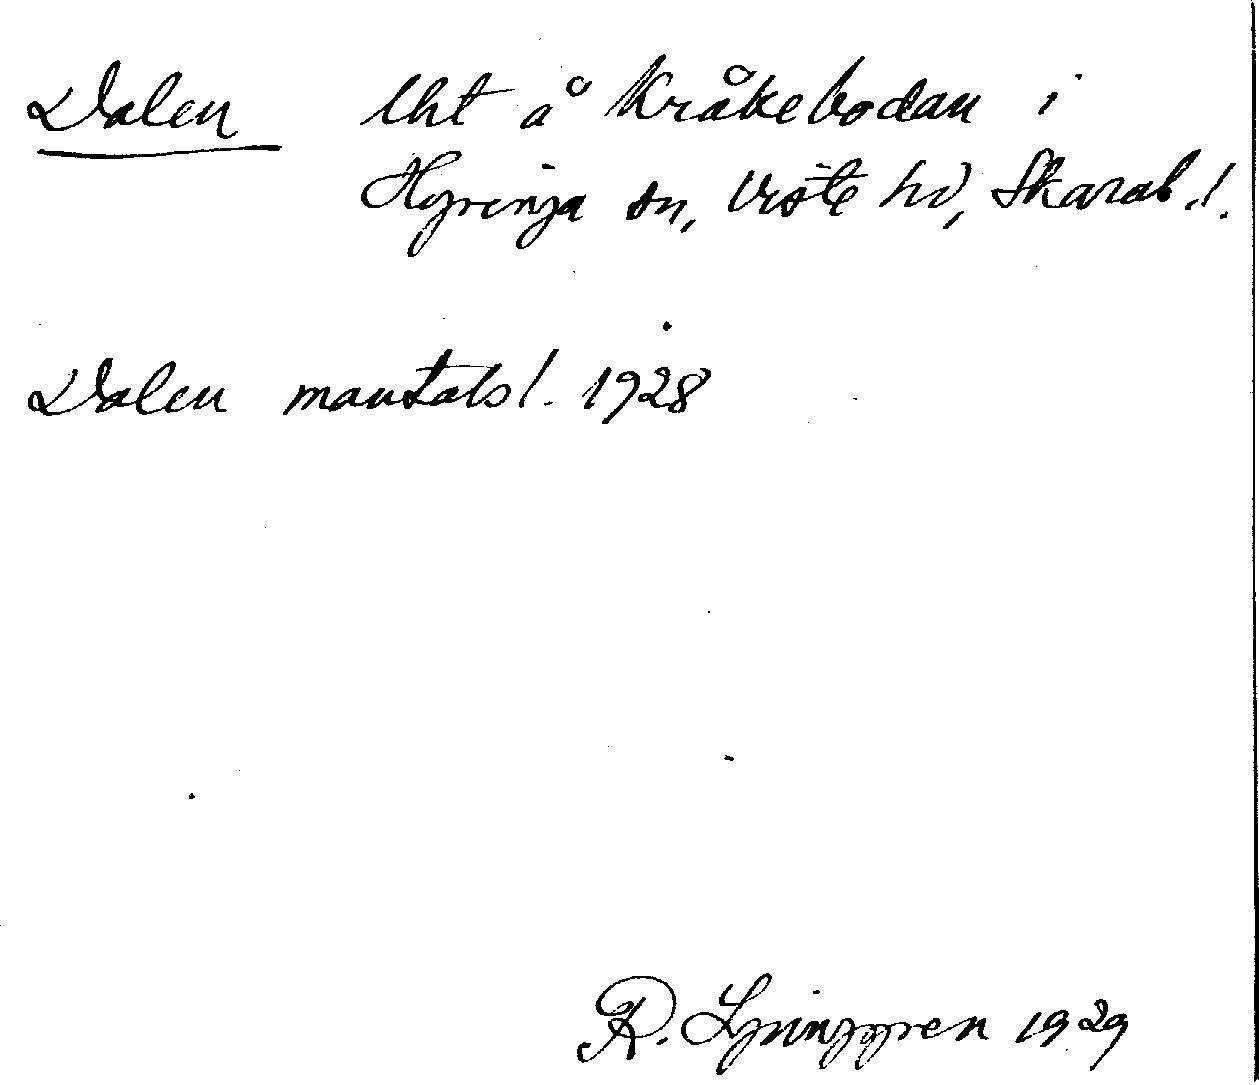 Dalen lht å Kråkebodan i
Hyringa sn, Viste hd, Skarab. l.
Dalen mantalsl. 1928
R. Ljunggren 1929